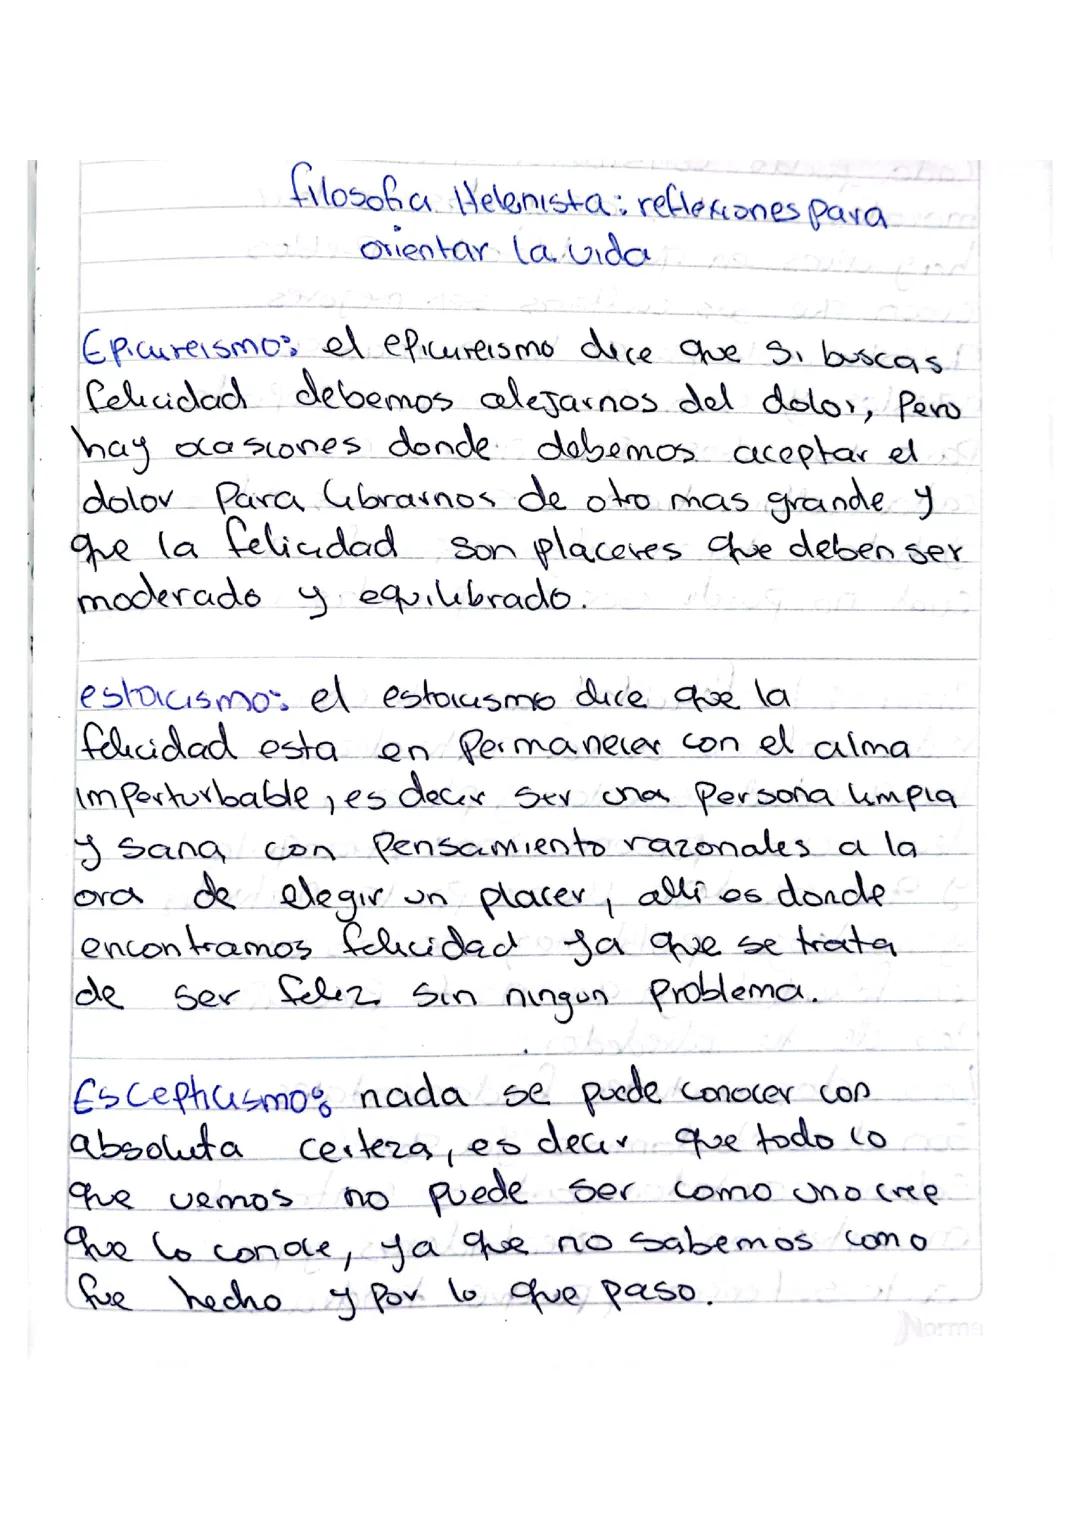 filosofia Helenista: reflexiones para
orientar la vida
Epicureismo: el epicureismo dice que si buscas
felicidad debemos alejarnos del dolor, Pero
hay ocasiones donde debemos aceptar el
dolor Para librarnos de otro mas grande y
que la felicidad son placeres que deben ser
moderado y equilibrado.
estoicismo: el estoicismo dice que la
felicidad esta en Permanecer con el alma
imperturbable, es decir ser una Persona limpia
y sana con Pensamiento razonales a la
ora de elegir un placer, alli es donde
encontramos felicidad ya que se trata
de ser feliz sin ningun Problema.
Escepticismo: nada se puede conocer con
absoluta certeza, es decir que todo lo
que vemos no puede ser como uno cree
que lo conoce, ya que no sabemos como
fue hecho y por lo que paso.
Norma